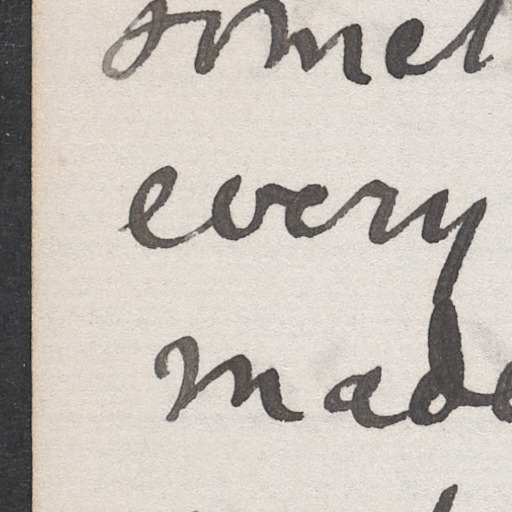 somet
every
made